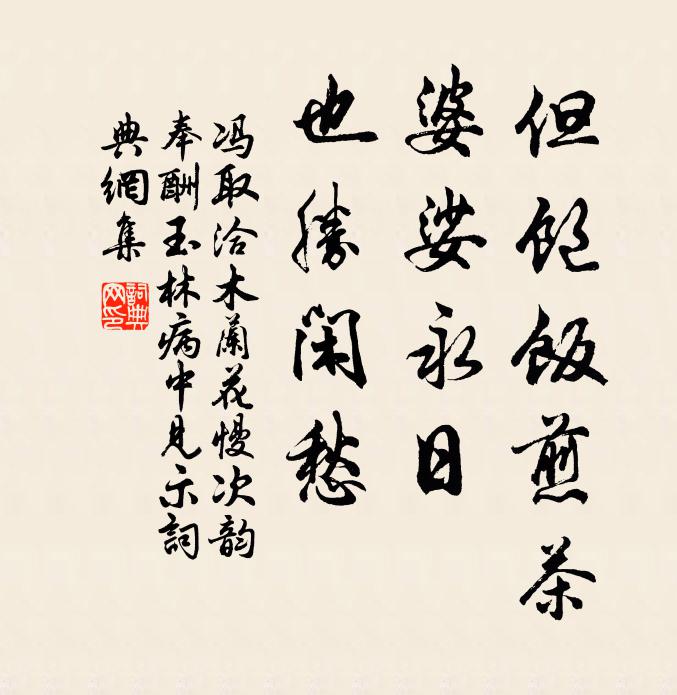 但饱饭煎茶
婆娑永日
也勝閑愁
冯取洽木蘭花慢次韵
奉酬玉林病中見示詞
典網集
詞典网印